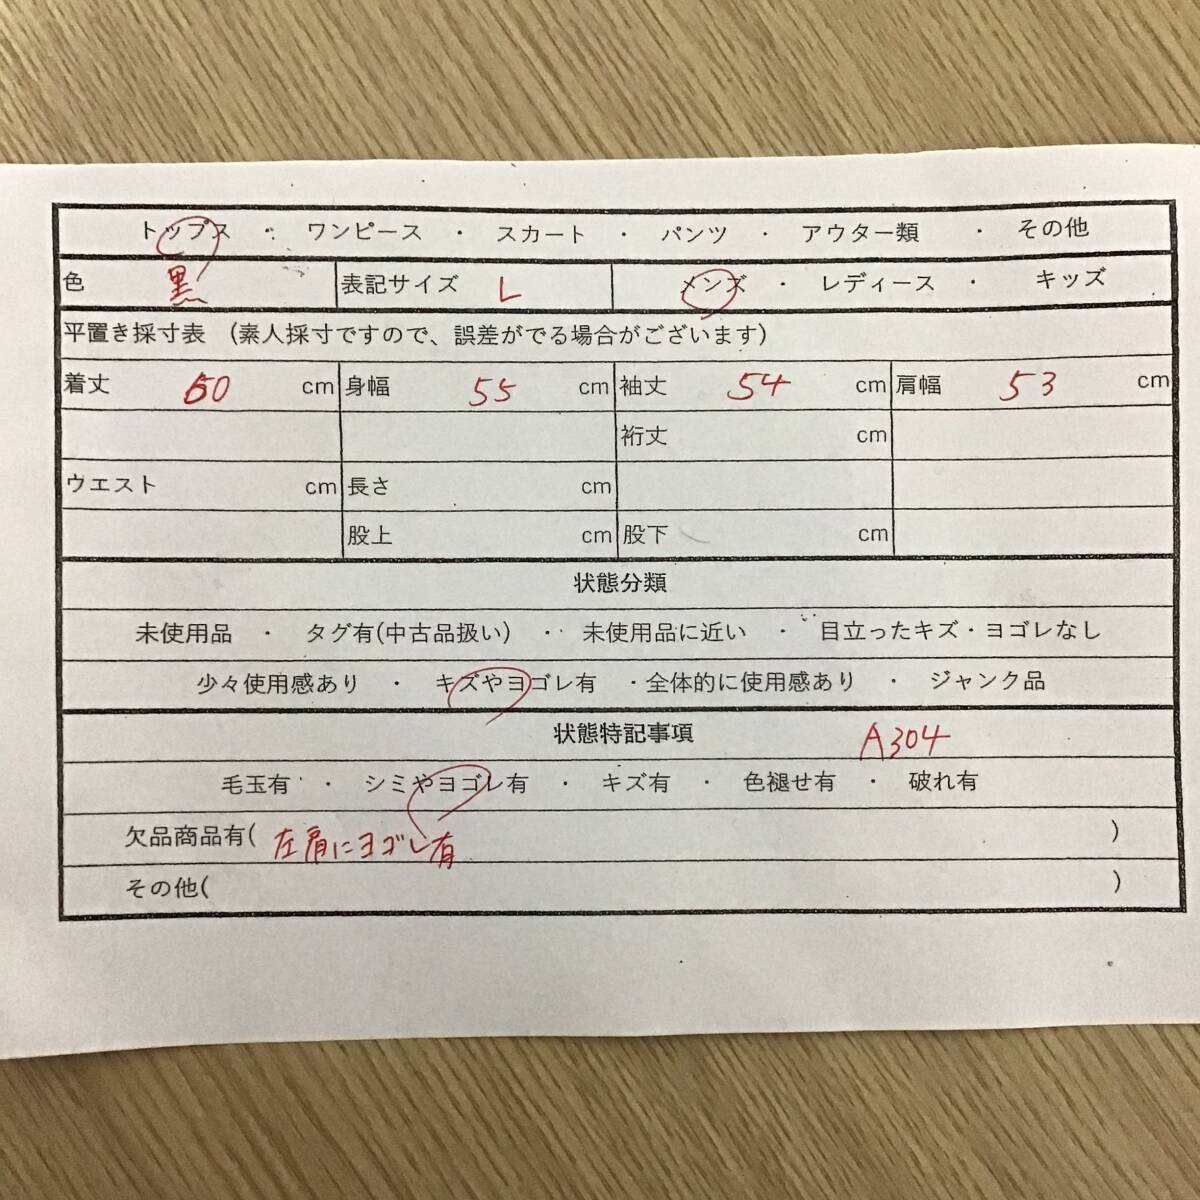 トップス ・ ワンピース ・ スカート ・ パンツ ・ アウター類 ・ その他
色 黒 表記サイズ L メンズ ・ レディース ・ キッズ
平置き採寸表 (素人採寸ですので、誤差がでる場合がございます)
着丈 60 cm 身幅 55 cm 袖丈 54 cm 肩幅 53 cm
裄丈 cm
ウエスト cm 長さ cm
股上 cm 股下 cm
状態分類
未使用品 ・ タグ有(中古品扱い) ・ 未使用品に近い ・ 目立ったキズ・ヨゴレなし
少々使用感あり ・ キズやヨゴレ有 ・全体的に使用感あり ・ ジャンク品
状態特記事項 A304
毛玉有 ・ シミやヨゴレ有 ・ キズ有 ・ 色褪せ有 ・ 破れ有
欠品商品有( 左肩にヨゴレ有 )
その他( )